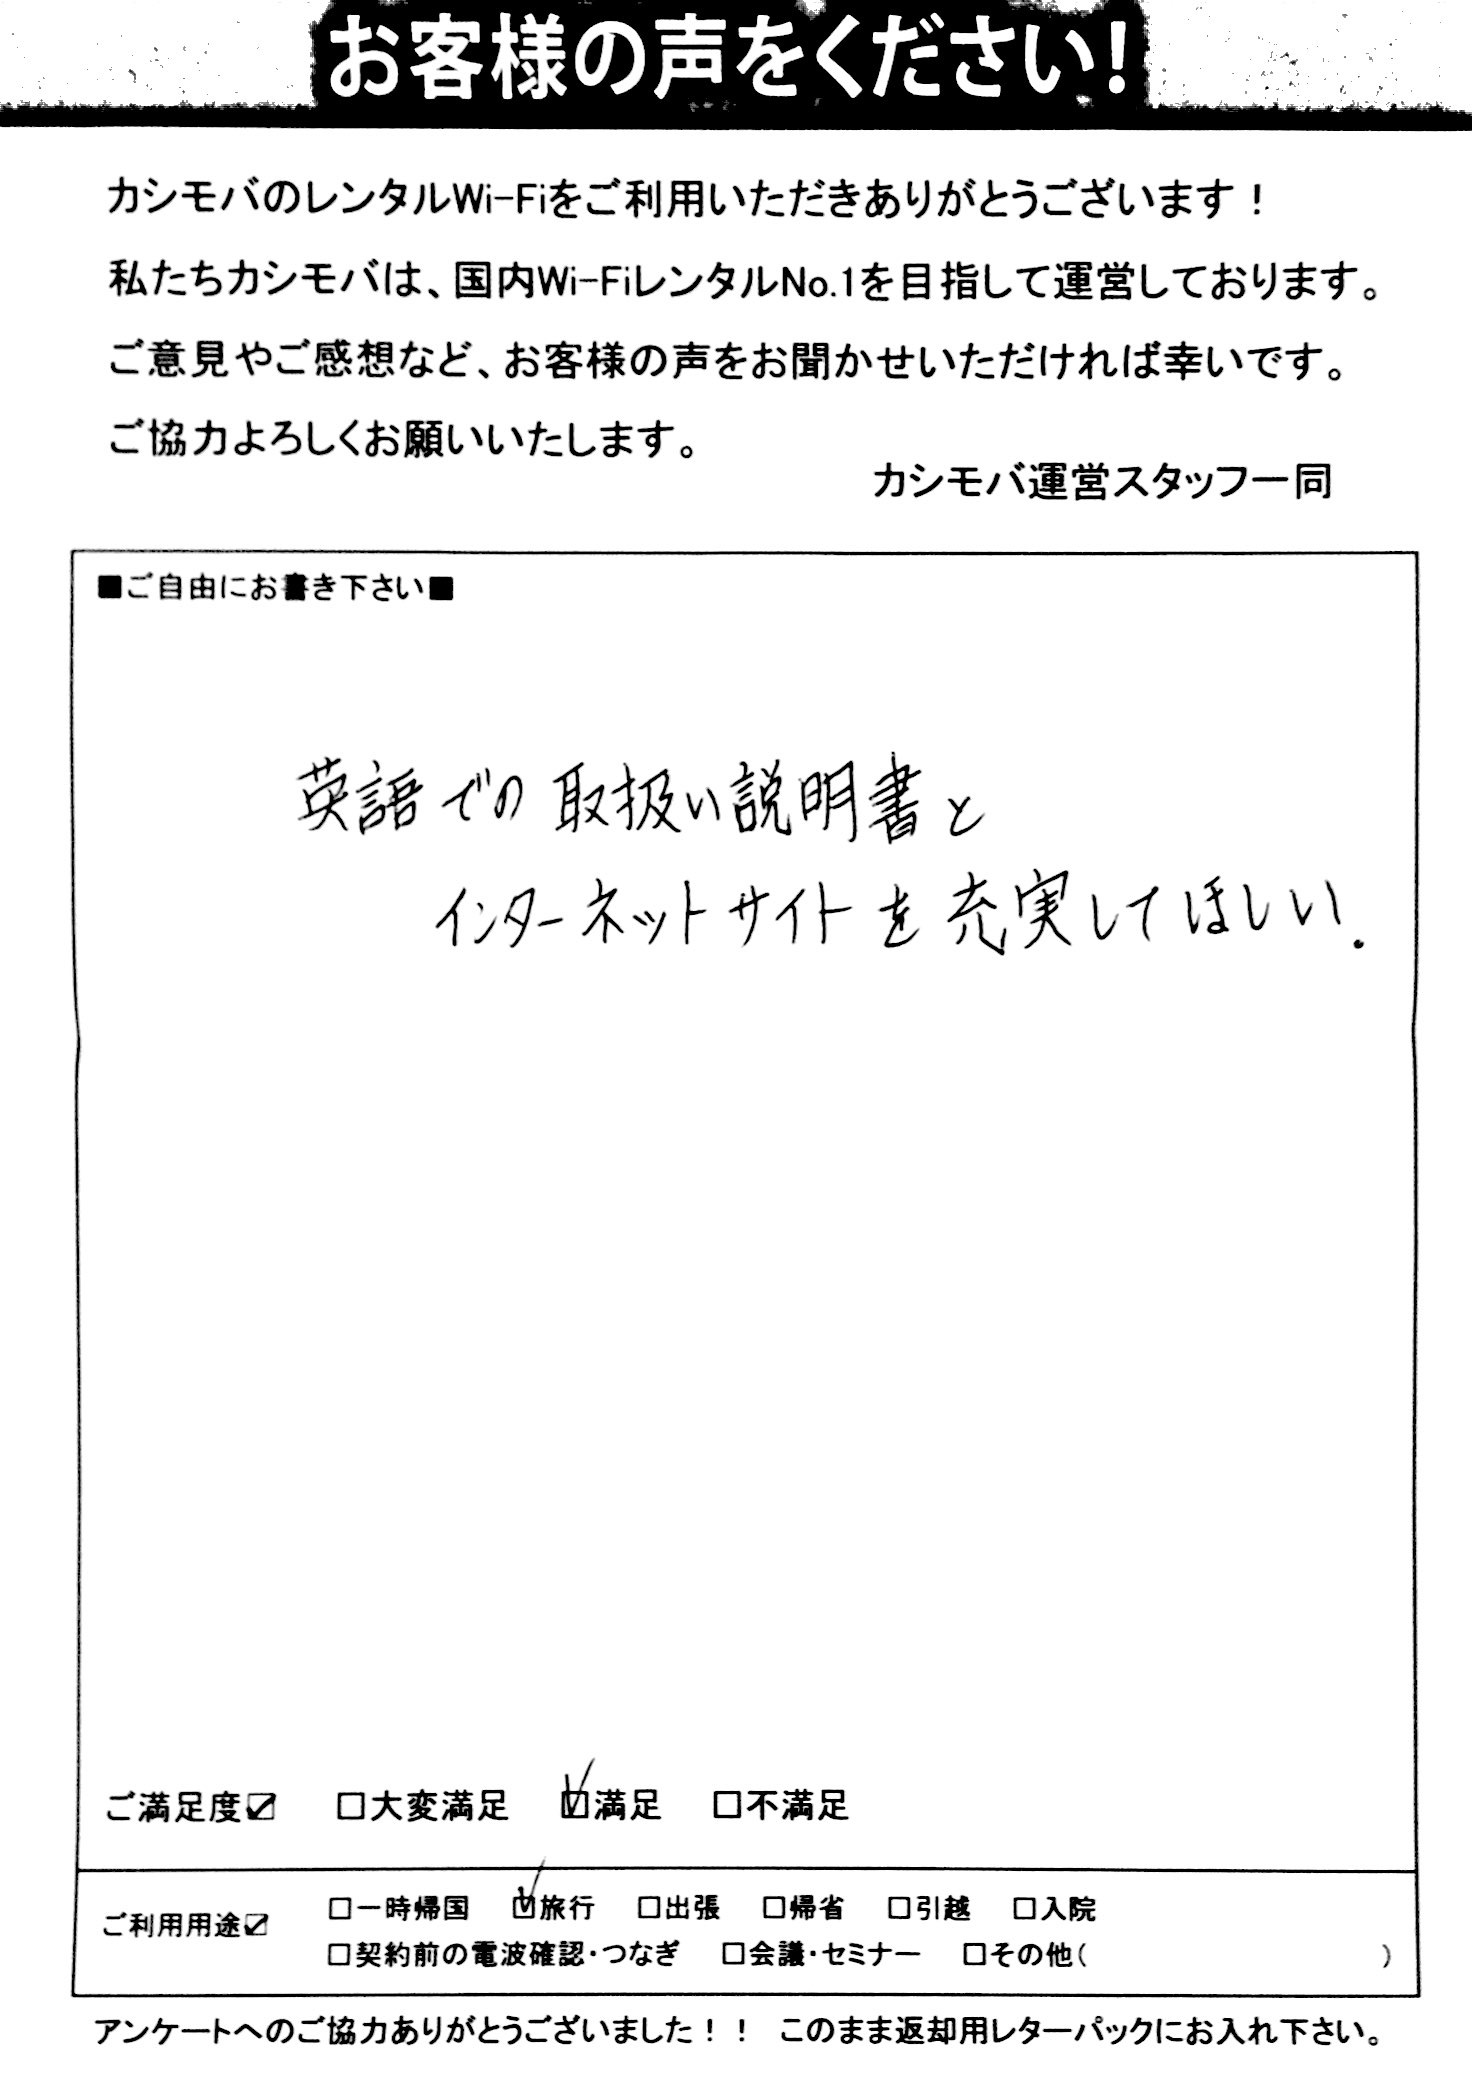 お客様の声をください!
カシモバのレンタルWi-Fiをご利用いただきありがとうございます!
私たちカシモバは、国内Wi-FiレンタルNo.1を目指して運営しております。
ご意見やご感想など、お客様の声をお聞かせいただければ幸いです。
ご協力よろしくお願いいたします。
カシモバ運営スタッフ一同
■ご自由にお書き下さい■
英語での取扱い説明書と
インターネットサイトを充実してほしい.
ご満足度☑ □大変満足 ☑満足 □不満足
ご利用用途☑ □一時帰国 ☑旅行 □出張 □帰省 □引越 □入院
□契約前の電波確認・つなぎ □会議・セミナー □その他( )
アンケートへのご協力ありがとうございました!! このまま返却用レターパックにお入れ下さい。